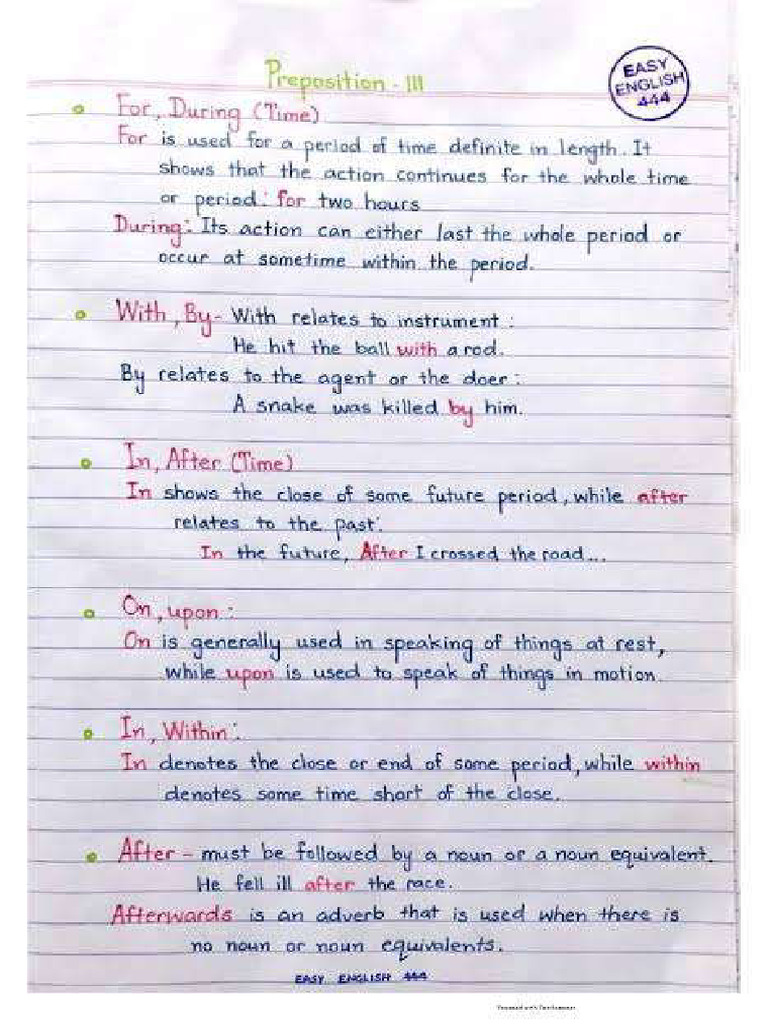 Preposition - III
EASY
ENGLISH
444
For, During (Time)
For is used for a period of time definite in length. It
shows that the action continues for the whole time
or period: for two hours
During: Its action can either last the whole period or
occur at sometime within the period.
With, By - With relates to instrument:
He hit the ball with a rod.
By relates to the agent or the doer:
A snake was killed by him.
In, After (Time)
In shows the close of some future period, while after
relates to the past.
In the future, After I crossed the road...
On, upon:
On is generally used in speaking of things at rest,
while upon is used to speak of things in motion.
In, Within:
In denotes the close or end of some period, while within
denotes some time short of the close.
After - must be followed by a noun or a noun equivalent.
He fell ill after the race.
Afterwards is an adverb that is used when there is
no noun or noun equivalents.
EASY ENGLISH 444